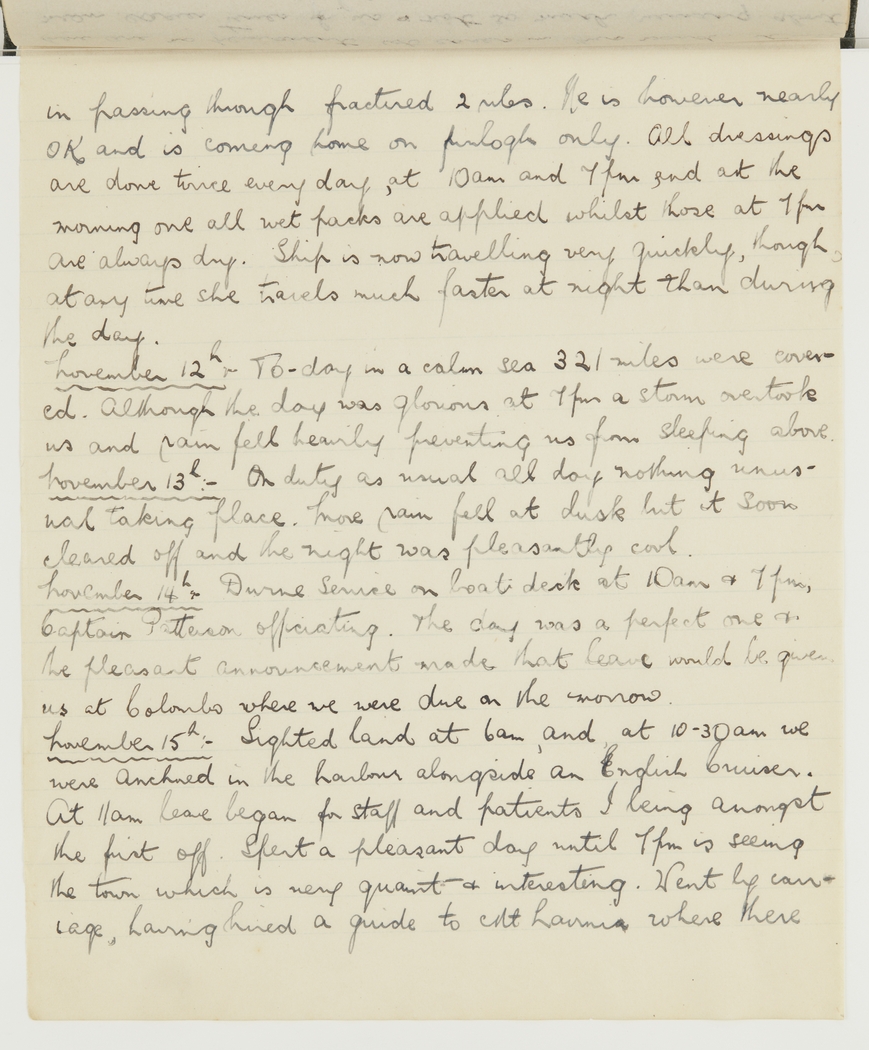 in passing through fractured 2 ribs. He is however nearly
OK and is coming home on furlogh only. All dressings
are done twice every day, at 10am and 7pm and at the
morning one all wet packs are applied whilst those at 7pm
are always dry. Ship is now travelling very quickly, though
at any time she travels much faster at night than during
the day.
November 12th:- To-day in a calm sea 321 miles were cover-
ed. Although the day was glorious at 7pm a storm overtook
us and rain fell heavily preventing us from sleeping above.
November 13th:- On duty as usual all day nothing unus-
ual taking place. More rain fell at dusk but it soon
cleared off and the night was pleasantly cool.
November 14th:- Divine Service on boat deck at 10am & 7pm,
Captain Patterson officiating. The day was a perfect one &
the pleasant announcement made that leave would be given
us at Colombo where we were due on the morrow.
November 15th:- Sighted land at 6am, and, at 10-30am we
were anchored in the harbour alongside an English Cruiser.
At 11am leave began for staff and patients I being amongst
the first off. Spent a pleasant day until 7pm is seeing
the town which is very quaint & interesting. Went by carr-
iage, having hired a guide to Mt Lavinia where there